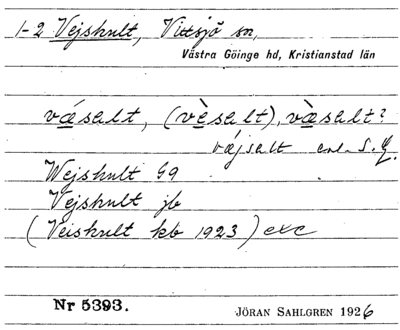 1-2 Vejshult, Vittsjö sn,
Västra Göinge hd, Kristianstad län
vásalt, (vèsalt), vàsalt?
vájsalt enl. S. G.
Wejshult G9
Vejshult jb
(Veishult kb 1923) exc
Nr 5393.
JÖRAN SAHLGREN 1926